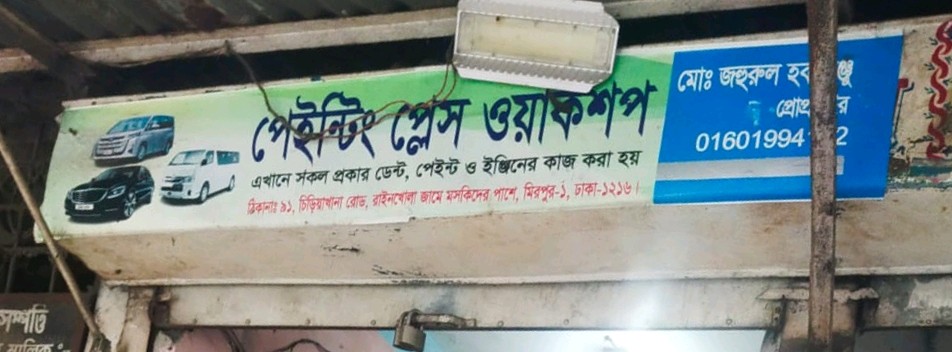 পেইন্টিং প্লেস ওয়াকশপ
এখানে সকল প্রকার ডেন্ট, পেইন্ট ও ইঞ্জিনের কাজ করা হয়
ঠিকানাঃ ৯১, চিড়িয়াখানা রোড, রাইনখোলা জামে মসজিদের পাশে, মিরপুর-১, ঢাকা-১২১৬।
মোঃ জহুরুল
01601994